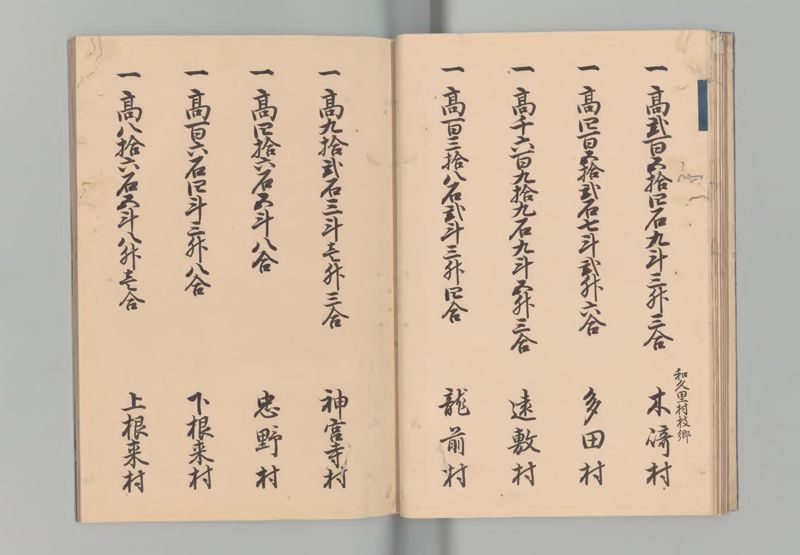 一高弐百五拾四石九斗三升三合
和久里村枝郷
木崎村
一高四百五拾弐石七斗弐升六合
多田村
一高千六百九拾九石九斗五升三合
遠敷村
一高百三拾八石弐斗三升四合
龍前村
一高九拾弐石三斗壱升三合
神宮寺村
一高四拾六石五斗八合
忠野村
一高百六石四斗三升八合
下根来村
一高八拾六石五斗八升壱合
上根来村